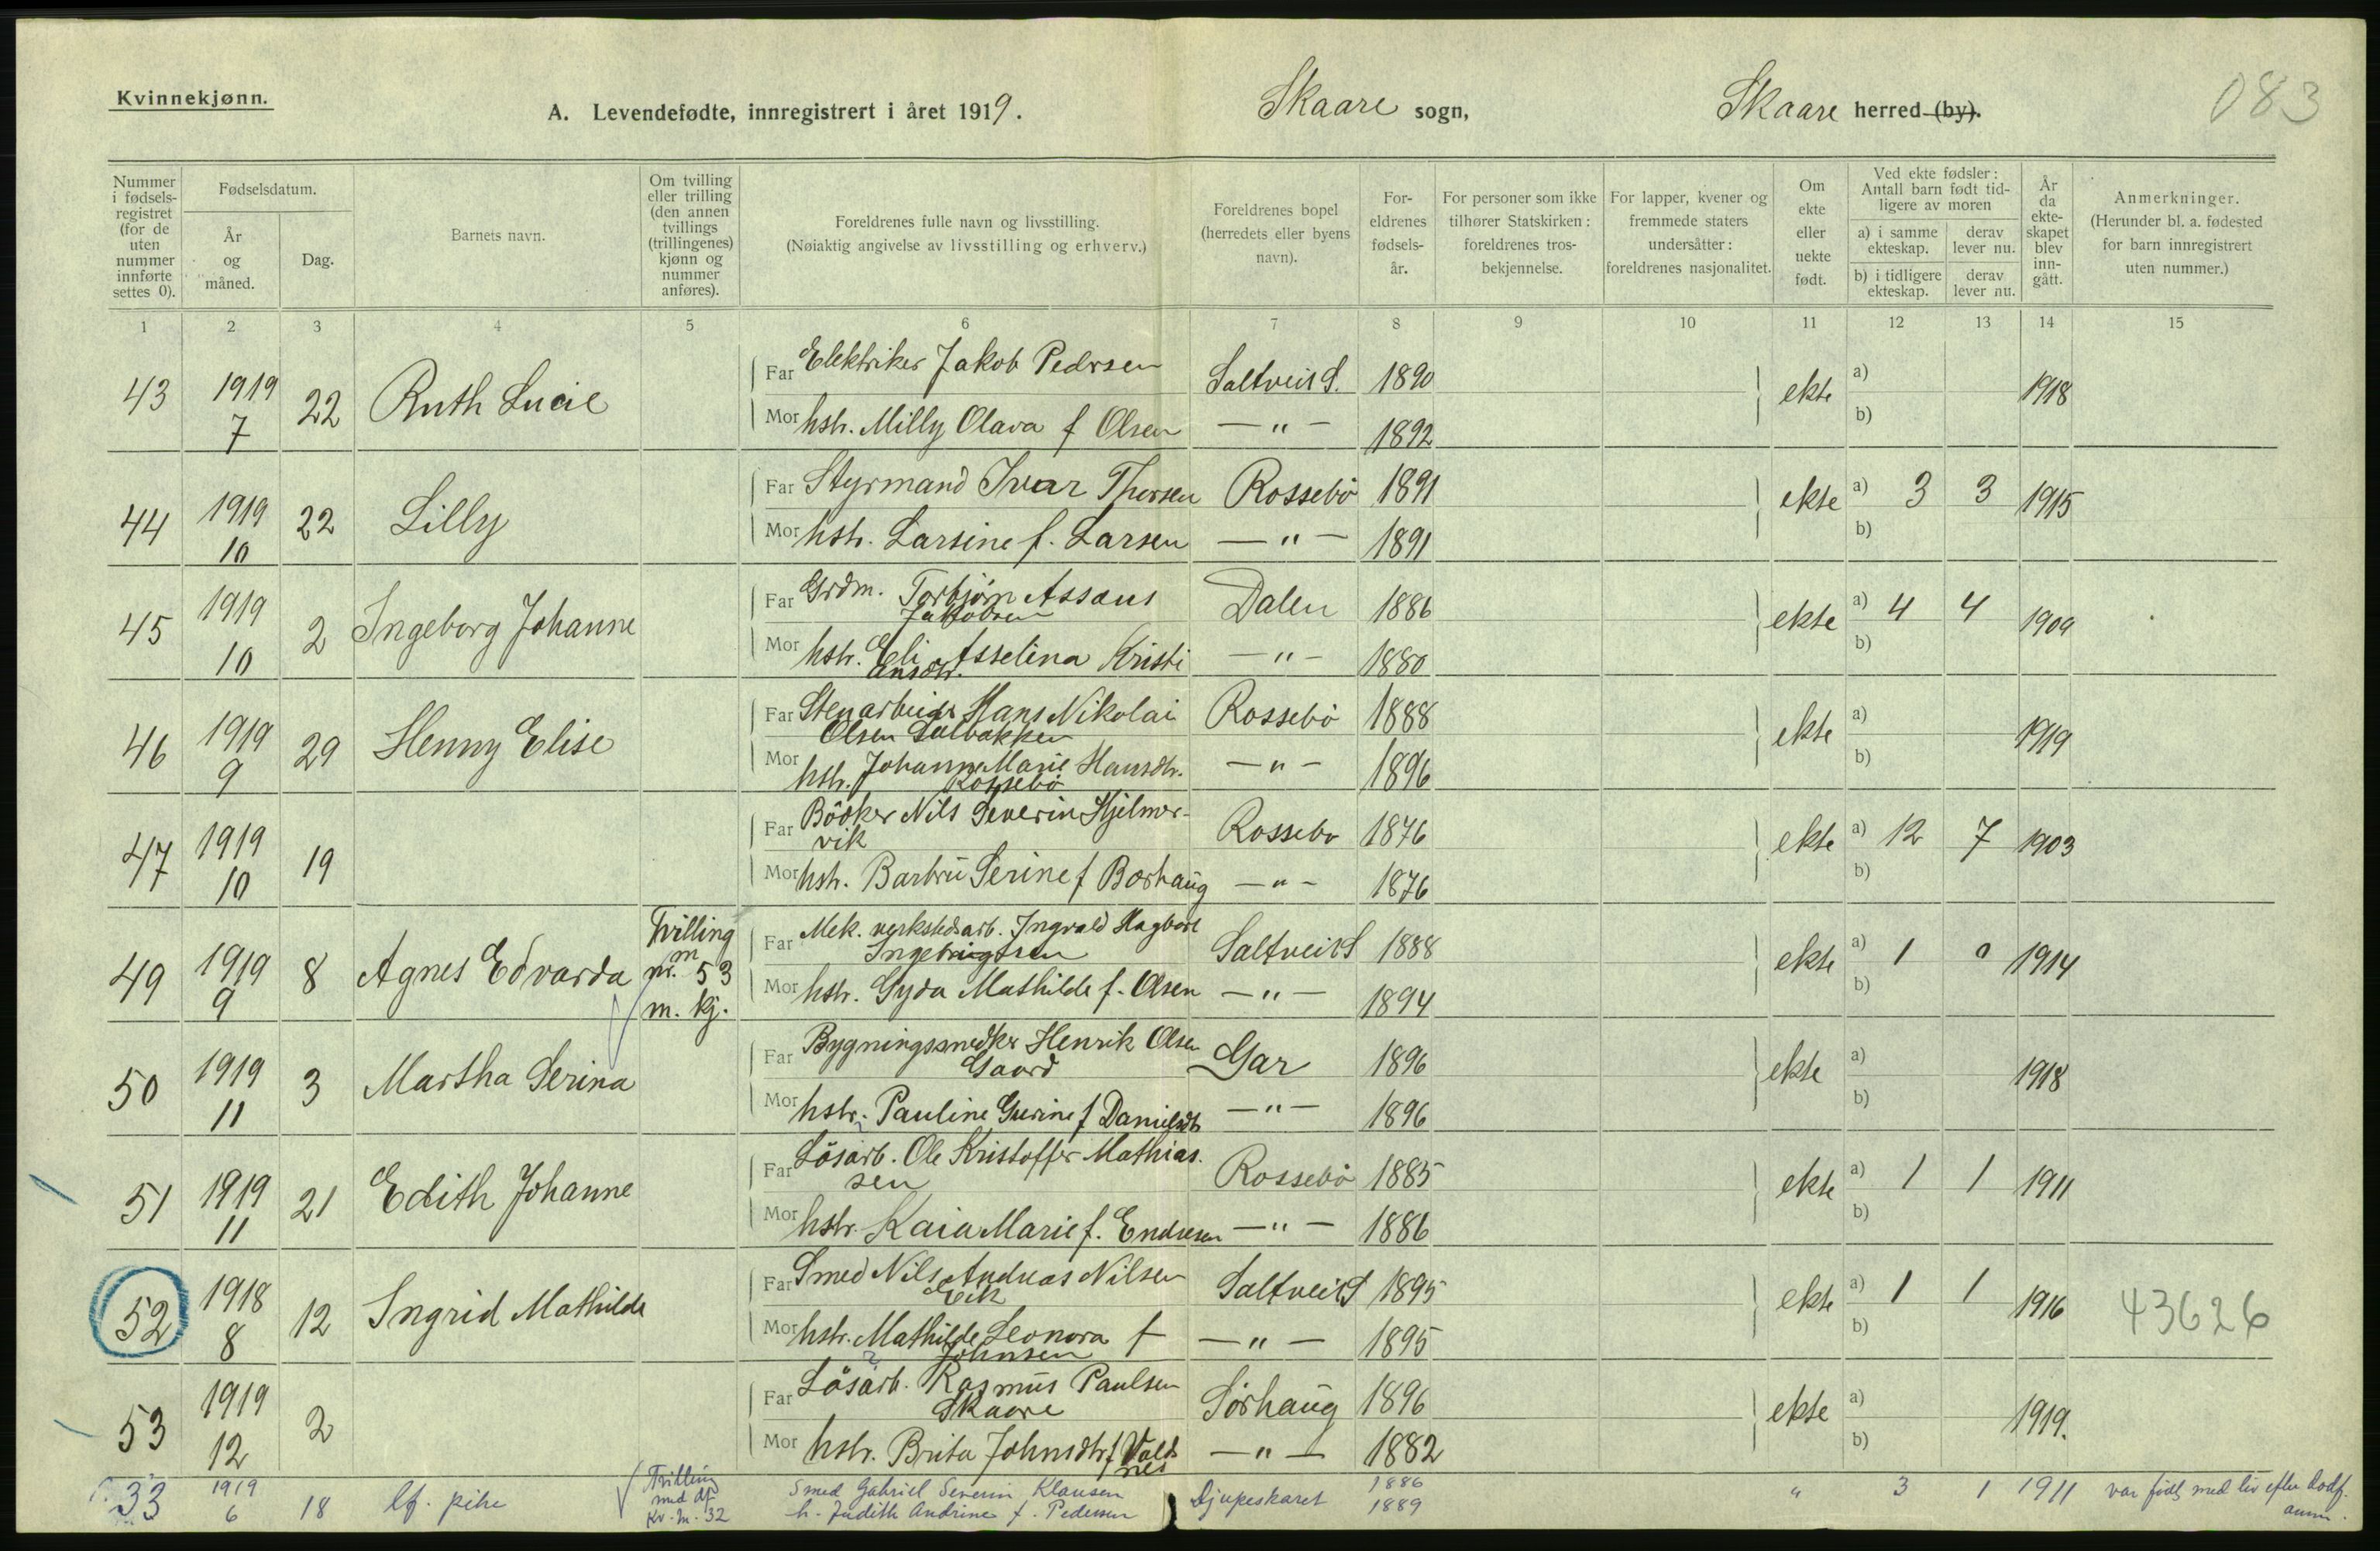 Kvinnekjønn.
A. Levendefødte, innregistrert i året 1919.
Skaare sogn,
Skaare herred (by).
083
Nummer i fødselsregistret (for de uten nummer innførte settes 0).
Fødselsdatum.
År og måned.
Dag.
Barnets navn.
Om tvilling eller trilling (den annen tvillings (trillingenes) kjønn og nummer anføres).
Foreldrenes fulle navn og livsstilling.
(Nøiaktig angivelse av livsstilling og erhverv.)
Foreldrenes bopel (herredets eller byens navn).
Foreldrenes fødselsår.
For personer som ikke tilhører Statskirken: foreldrenes trosbekjennelse.
For lapper, kvener og fremmede staters undersåtter: foreldrenes nasjonalitet.
Om ekte eller uekte født.
Ved ekte fødsler: Antall barn født tidligere av moren
a) i samme ekteskap.
derav lever nu.
b) i tidligere ekteskap.
derav lever nu.
År da ekteskapet blev inngått.
Anmerkninger.
(Herunder bl. a. fødested for barn innregistrert uten nummer.)
1 2 3 4 5 6 7 8 9 10 11 12 13 14 15
43 1919 7 22 Ruth Lucie
Far Elektriker Jakob Pedersen Saltveit S. 1890 ekte a) 1918
Mor hstr. Milly Olava f Olsen —"— 1892 b)
44 1919 10 22 Lilly
Far Styrmand Ivar Thorsen Rossebö 1891 ekte a) 3 3 1915
Mor hstr. Larsine f. Larsen —"— 1891 b)
45 1919 10 2 Ingeborg Johanne
Far Grdm. Torbjørn Assaus Jakobsen Dalen 1886 ekte a) 4 4 1909
Mor hstr. Eli Asselina Kristi Ansdtr. —"— 1880 b)
46 1919 9 29 Henny Elise
Far Stenarbeider Hans Nikolai Olsen Solbakken Rossebö 1888 ekte a) 1919
Mor hstr. Johanne Marie Hansdtr. Rossebö —"— 1896 b)
47 1919 10 19
Far Bödker Nils Severin Hjelmervik Rossebo 1876 ekte a) 12 7 1903
Mor hstr. Barbru Serine f Borhaug —"— 1876 b)
49 1919 9 8 Agnes Edvarda Tvilling m nr. 53 m. kj.
Far Mek. verkstedsarb. Ingvald Hagbart Ingebrigtsen Saltveit S 1888 ekte a) 1 0 1914
Mor hstr. Gyda Mathilde f. Olsen —"— 1894 b)
50 1919 11 3 Martha Serina
Far Bygningssnedker Henrik Olsen Gaard Gar 1896 ekte a) 1918
Mor hstr. Pauline Gurine f Danielsdtr —"— 1896 b)
51 1919 11 21 Edith Johanne
Far Lösarb. Ole Kristoffer Mathiassen Rossebö 1885 ekte a) 1 1 1911
Mor hstr. Kaia Marie f. Endresen —"— 1886 b)
52 1918 8 12 Ingrid Mathilde
Far Smed Nils Andreas Nilsen Eik Saltveit S 1895 ekte a) 1 1 1916 43626
Mor hstr. Mathilde Leonora f Johnsen —"— 1895 b)
53 1919 12 2
Far Lösarb. Rasmus Paulsen Skaare Sörhaug 1896 ekte a) 1919.
Mor hstr. Brita Johnsdtr f Valdnes —"— 1882 b)
33 1919 6 18 lf. pike Tvilling med df Kv. m. 32
Smed Gabriel Severin Klausen Djupeskaret 1886 " 3 1 1911 var född med liv efter dødf. anm.
h. Judith Andrine f. Pedersen 1889